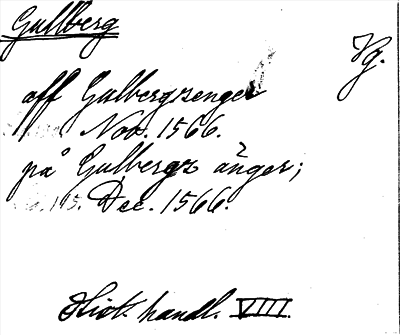 Gullberg
Vg.
aff Gulbergxenger
Nov. 1566.
på Gulbergz ånger;
Dec. 1566.
Hist. handl. VIII.